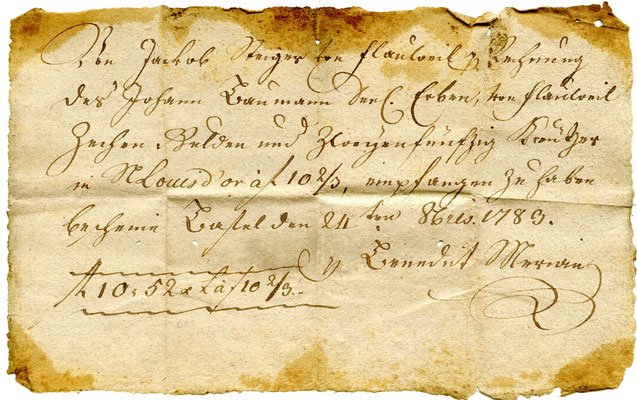 Von Jackob Steiger von Flauweil p Rechnung
des Johann Baumann Seel. Erben, von Flauweil
Zechen Gulden und Zweyenfünfzig Kreutzer
in Nlouisd'or à f 10 2/3, empfangen zu haben
bescheine Basel den 24ten 8bres. 1783.
p Benedict Merian
f 10:52 x Là f 10 2/3.